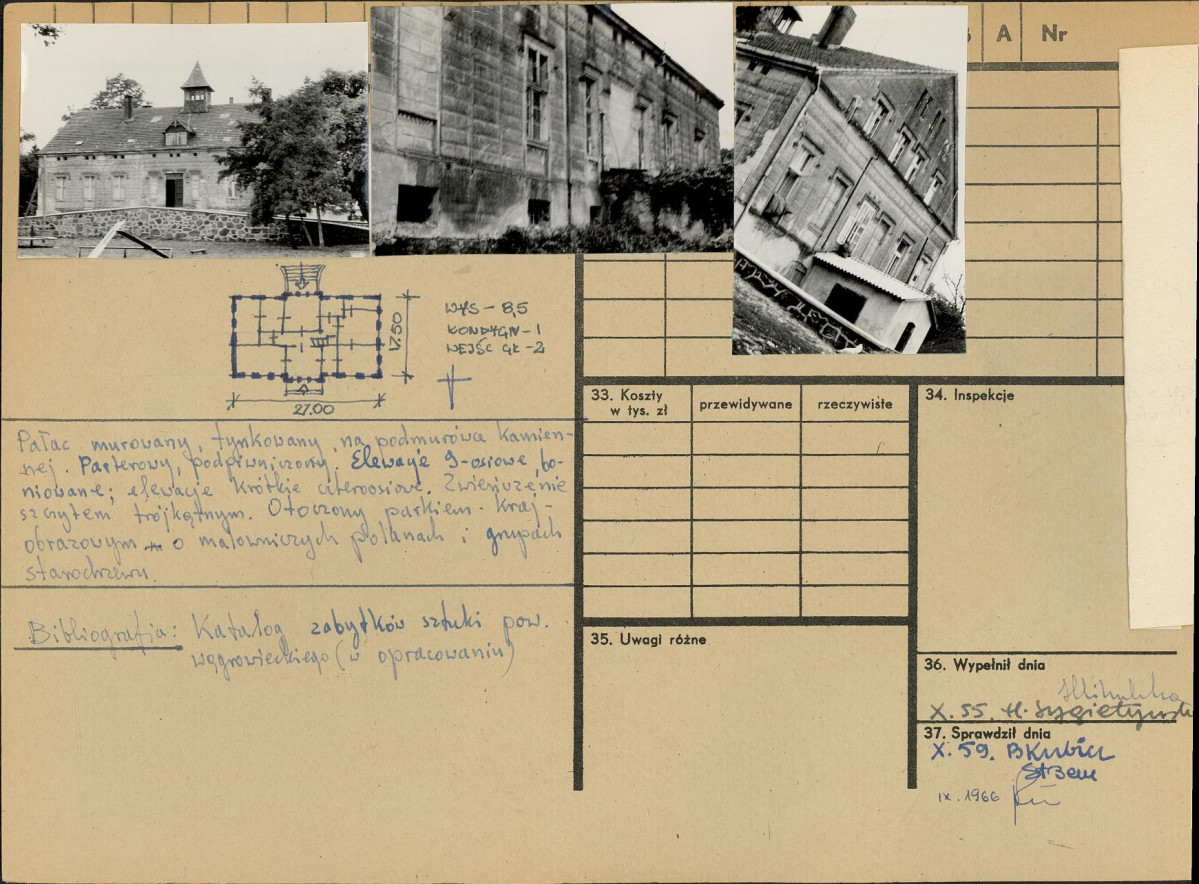 A Nr
WYS – 8,5
KONDYGN – 1
WEJŚC GŁ – 2
17.50
27.00
Pałac murowany, tynkowany, na podmurówce kamien-
nej. Parterowy, podpiwniczony. Elewacje 9-osiowe, bo-
niowane; elewacje krótkie czteroosiowe. Zwieńczenie
szczytem trójkątnym. Otoczony parkiem kraj-
obrazowym o malowniczych polanach i grupach
starodrzewu.
Bibliografia: Katalog zabytków sztuki pow.
wągrowieckiego (w opracowaniu)
33. Koszty
w tys. zł
przewidywane
rzeczywiste
34. Inspekcje
35. Uwagi różne
36. Wypełnił dnia
X. 55. H.
37. Sprawdził dnia
X. 59. BKubicz
IX. 1966